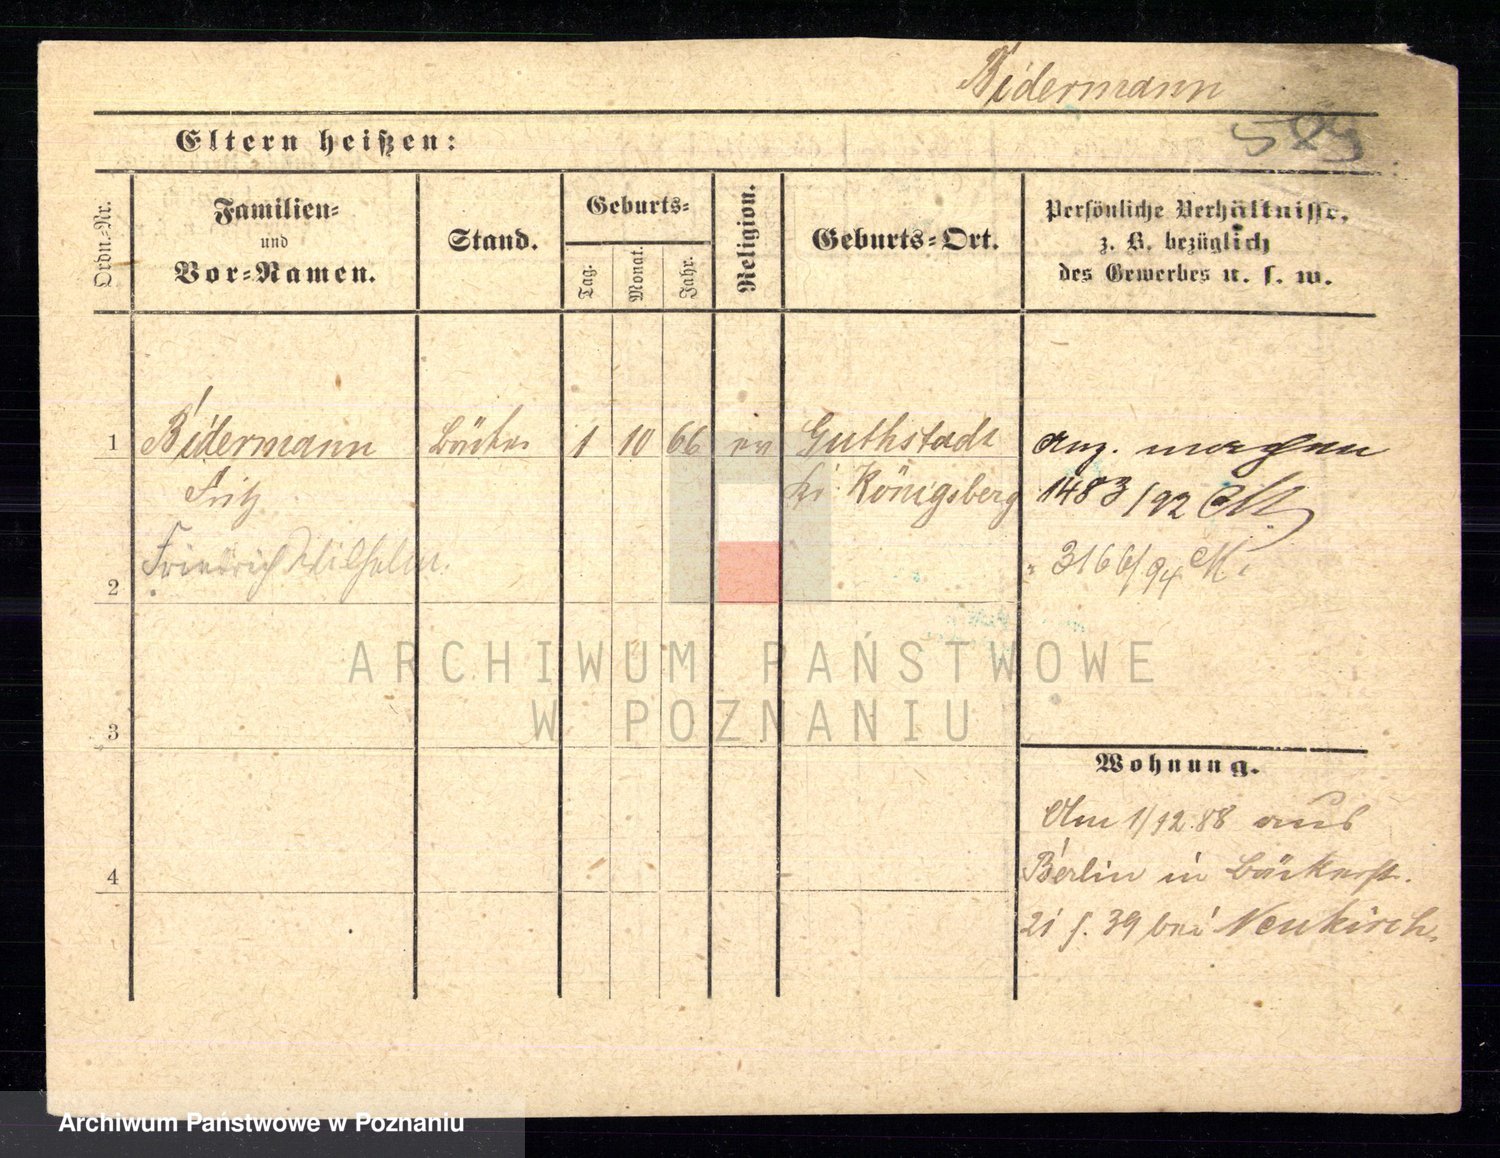 Bidermann
Eltern heißen:
Ordn.-Nr.
Familien-
und
Vor-Namen.
Stand.
Geburts-
Tag.
Monat.
Jahr.
Religion.
Geburts-Ort.
Persönliche Verhältnisse,
z. B. bezüglich
des Gewerbes u. s. w.
1 Bidermann Bäcker 1 10 66 ev Guthstadt
Fritz bei Königsberg
Friedrich Wilhelm.
1483/92
3166/94
2
3
4
ARCHIWUM PAŃSTWOWE
W POZNANIU
Wohnung.
Am 1/12.88 aus
Berlin in Bäckerstr.
21 f. 39 bei Neukirch.
Archiwum Państwowe w Poznaniu